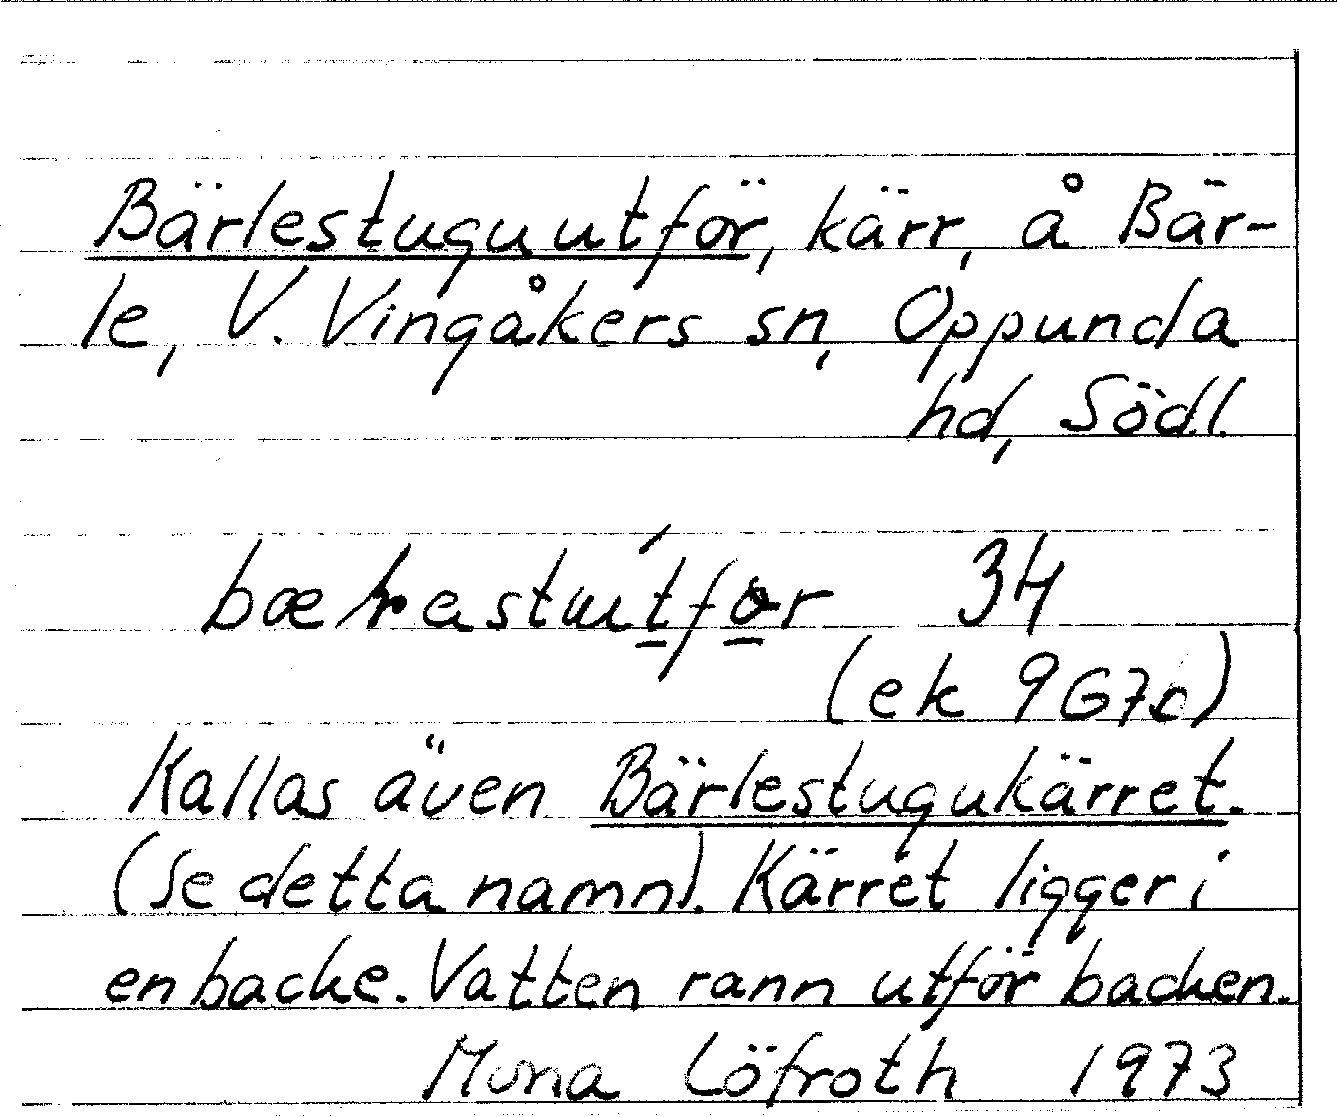 Bärlestuguutför, kärr, å Bär-
le, V. Vingåkers sn, Oppunda
hd, Södl.
34
(ek 9G7c)
Kallas även Bärlestugukärret.
(Se detta namn). Kärret ligger i
en backe. Vatten rann utför backen.
Mona Löfroth 1973